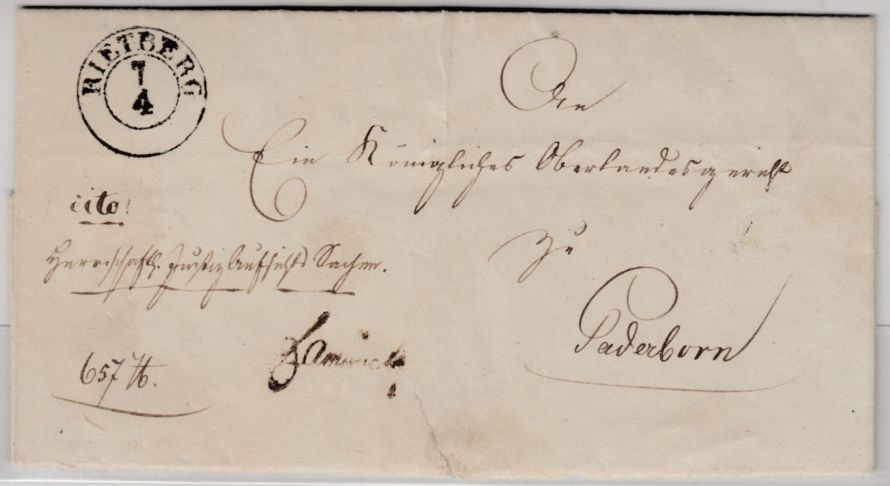 RIETBERG
7
4
An
Ein Königliches Oberlandesgericht
zu
Paderborn
cito!
Herrschaftl. Justiz Aufsichts Sachen.
657